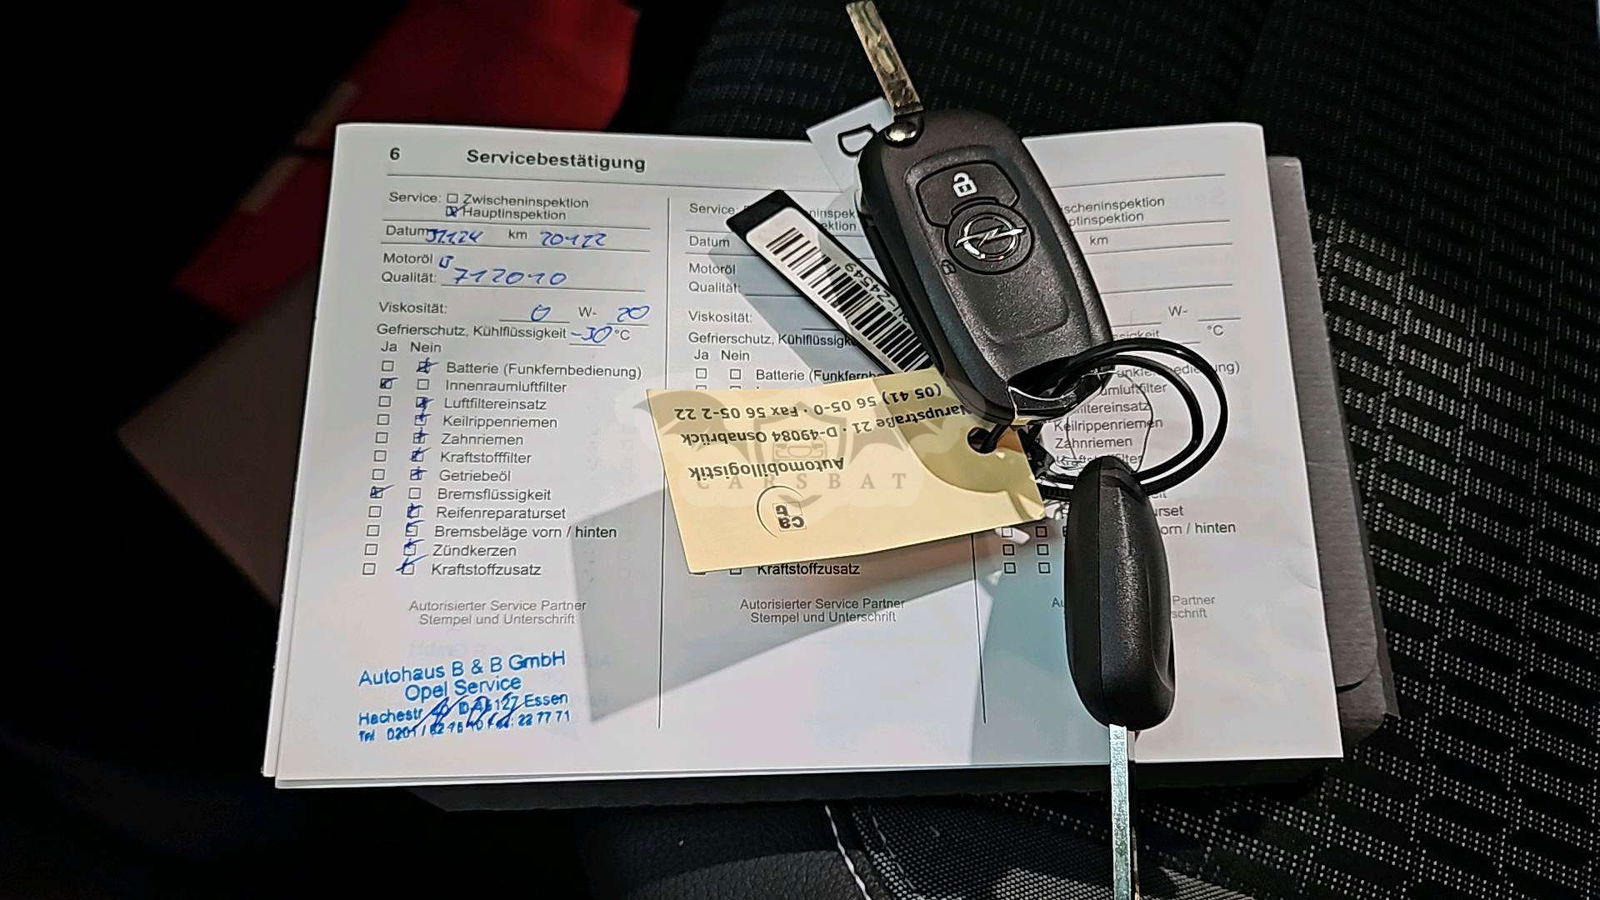 6 Servicebestätigung
Service: Zwischeninspektion
Hauptinspektion
Datum km 20122
Motoröl
Qualität: 712010
Viskosität: 0 W- 20
Gefrierschutz, Kühlflüssigkeit -30 °C
Ja Nein
Batterie (Funkfernbedienung)
Innenraumluftfilter
Luftfiltereinsatz
Keilrippenriemen
Zahnriemen
Kraftstofffilter
Getriebeöl
Bremsflüssigkeit
Reifenreparaturset
Bremsbeläge vorn / hinten
Zündkerzen
Kraftstoffzusatz
Autorisierter Service Partner
Stempel und Unterschrift
Autohaus B & B GmbH
Opel Service
Hachestr Essen
Tel 0201 /
Service:
Datum
Motoröl
Qualität:
Viskosität:
Gefrierschutz, Kühlflüssigk
Ja Nein
Batterie (Funkfernb
Kraftstoffzusatz
Autorisierter Service Partner
Stempel und Unterschrift
scheninspektion
ptinspektion
km
W-
°C
umluftfilter
filtereinsatz
Keilrippenriemen
Zahnriemen
rset
vorn / hinten
Partner
schrift
Automobillogistik
Narupstraße 21 · D-49084 Osnabrück
(05 41) 56 05-0 · Fax 56 05-2 22
CARSBAT